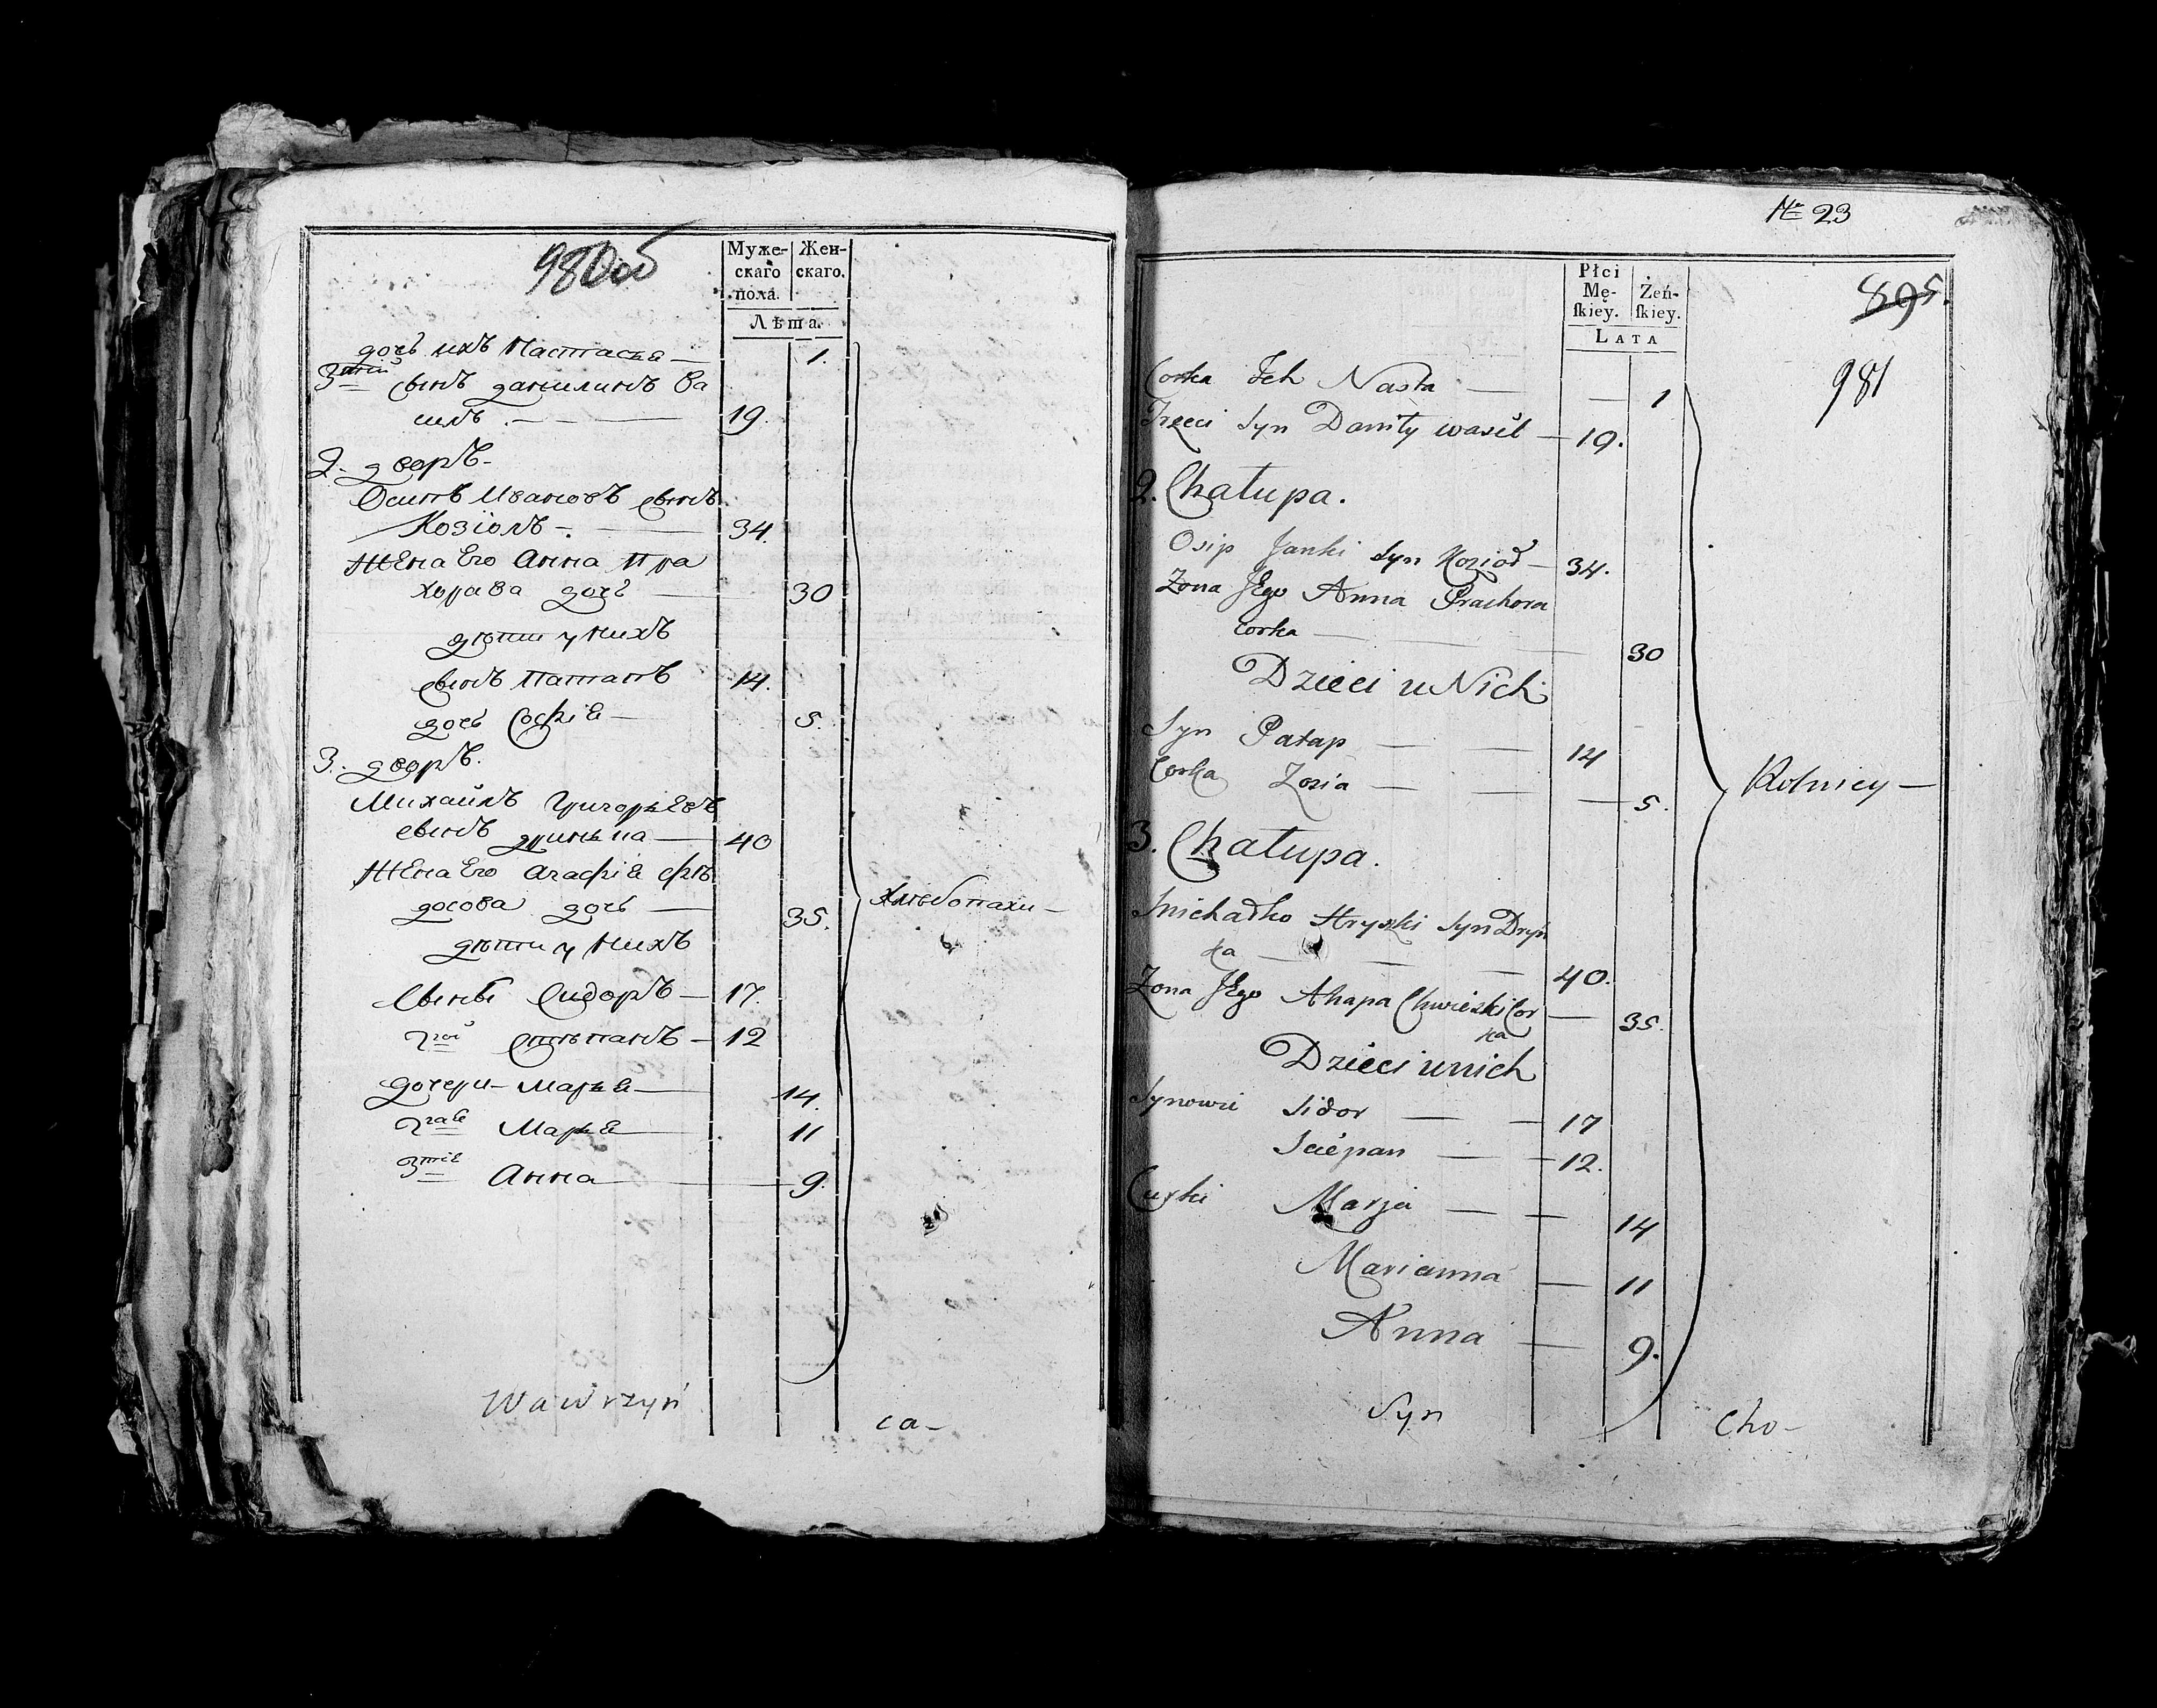 980об
Муже-
скаго
пола.
Жен-
скаго.
Лѣта.
дочь ихъ Настасья — 1.
3тій сынъ данилинъ Ва
силь . — — — 19.
2. дворъ.
Осипъ Ивановъ сынъ
Козіолъ — . — 34.
Жена Его Анна Пра
хорава дочь — 30
дѣти у Нихъ
сынъ Патапъ 14.
дочь Софія — 5.
3. дворъ.
Михайлъ Григорьевъ
сынъ дринька — 40
Жена Его Агафія Фѣ
досова дочь — 35.
дѣти у Нихъ
Сыны Сидоръ — 17.
2гой Стѣпанъ — 12
дочери — Марья — 14.
2гая Марья — 11
3тія Анна — 9.
Хлѣбопахи —
Wawrzyń
ca —
№ 23
Płci
Mę-
ſkiey.
Żeń-
ſkiey.
LATA
895.
981
Corka Ich Nasta — — 1
Trzeci Syn Daniły wasil — 19.
2. Chałupa.
Osip Janki Syn Kozioł — 34.
Zona JEgo Anna Prachora
corka — — — 30
Dzieci u Nich
Syn Patap — — 14
Corka Zosia — — — 5.
3. Chałupa.
Michałko Hryszki Syn Dryń
ka — — — — 40.
Zona JEgo Ahapa Chwieski Cor — 35.
ka
Dzieci u nich
Synowie Sidor — — 17
Sciepan — — 12.
Curki Marja — — 14
Marianna — 11
Anna — 9.
Rolnicy —
Syn
Cho —